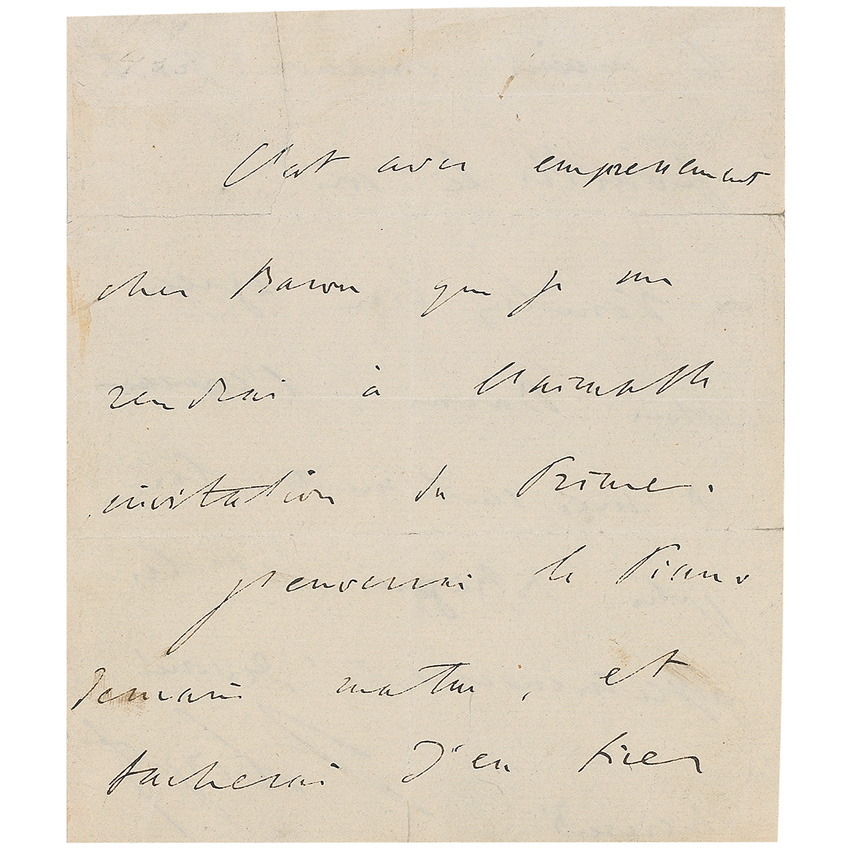 C'est avec empressement
cher Baron que je me
rendrai à l'aimable
invitation du Prince.
J'enverrai le Piano
demain matin, et
tacherai d'en tirer